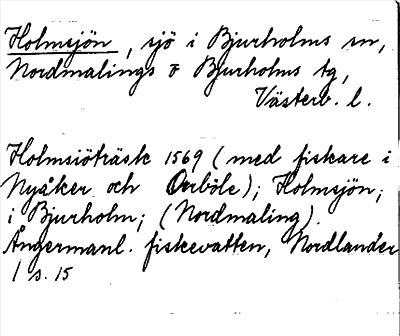 Holmsjön, sjö i Bjurholms sn,
Nordmalings o Bjurholms tg,
Västerb. l.
Holmsiöträsk 1569 (med fiskare i
Nyåker och Orrböle); Holmsjön;
i Bjurholm; (Nordmaling).
Ångermanl. fiskevatten, Nordlander
1 s. 15